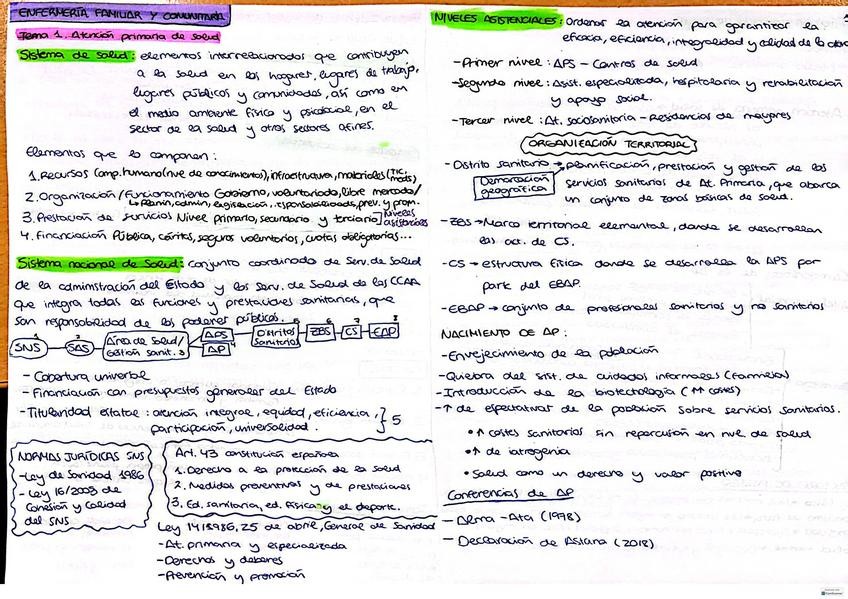 ENFERMERÍA FAMILIAR Y COMUNITARIA
Tema 1. Atención primaria de salud
Sistema de salud: elementos interrelacionados que contribuyen
a la salud en los hogares, lugares de trabajo,
lugares públicos y comunidades, así como en
el medio ambiente físico y psicosocial, en el
sector de la salud y otros sectores afines.
Elementos que lo componen:
1. Recursos (comp. humano (nive de conocimientos), infraestructura, materiales (TIC, meds)
2. Organización / Funcionamiento Gobierno, voluntariado, libre mercado /
↳ Planin, admin, legislación, responsabilidada, prev. y prom.
3. Prestación de servicios Nivel primario, secundario y terciario] Niveles asistenciales
4. Financiación Pública, cáritas, seguros voluntarios, cuotas obligatorias...
Sistema nacional de Salud: conjunto coordinado de Serv. de Salud
de la administración del Estado y los Serv. de Salud de las CCAA
que integra todas las funciones y prestaciones sanitarias, que
son responsabilidad de los poderes públicos.
SNS 1 SAS 2 Área de Salud / Gestión sanit. 3 APS AP 4 Distritos Sanitarios 5 ZBS 6 CS 7 EAP 8
- Cobertura universal
- Financiación con presupuesto generales del Estado
- Titularidad estatal: atención integral, equidad, eficiencia,
participación, universalidad. } 5
NORMAS JURÍDICAS SNS
- Ley de Sanidad 1986
- Ley 16/2003 de
Cohesión y Calidad
del SNS
Art. 43 constitución española
1. Derecho a la protección de la salud
2. Medidas preventivas y de prestaciones
3. Ed. sanitaria, ed. física y el deporte.
Ley 14/8986, 25 de abril, General de Sanidad
- At. primaria y especializada
- Derechos y deberes
- Prevención y promoción
NIVELES ASISTENCIALES: Ordenar la atención para garantizar la
eficacia, eficiencia, integralidad y calidad de la
- Primer nivel: APS - Centros de salud
- Segundo nivel: Asist. especializada, hospitalaria y rehabilitación
y apoyo social.
- Tercer nivel: At. sociosanitaria - Residencias de mayores
ORGANIZACIÓN TERRITORIAL
- Distrito sanitario → planificación, prestación y gestión de los
Demarcación geográfica
servicios sanitarios de At. Primaria, que abarca
un conjunto de zonas básicas de salud.
- ZBS → Marco territorial elemental, donde se desarrollan
las act. de CS.
- CS → estructura física donde se desarrolla la APS por
parte del EBAP.
- EBAP → conjunto de profesionales sanitarios y no sanitarios
NACIMIENTO DE AP:
- Envejecimiento de la población
- Quiebra del sist. de cuidados informales (familias)
- Introducción de la biotecnología (↑↑ costes)
- ↑ de expectativas de la población sobre servicios sanitarios.
• ↑ costes sanitarios sin repercusión en nive. de salud
• ↑ de iatrogenia
• Salud como un derecho y valor positivo
Conferencias de AP
- Alma-Ata (1978)
- Declaración de Astana (2018)